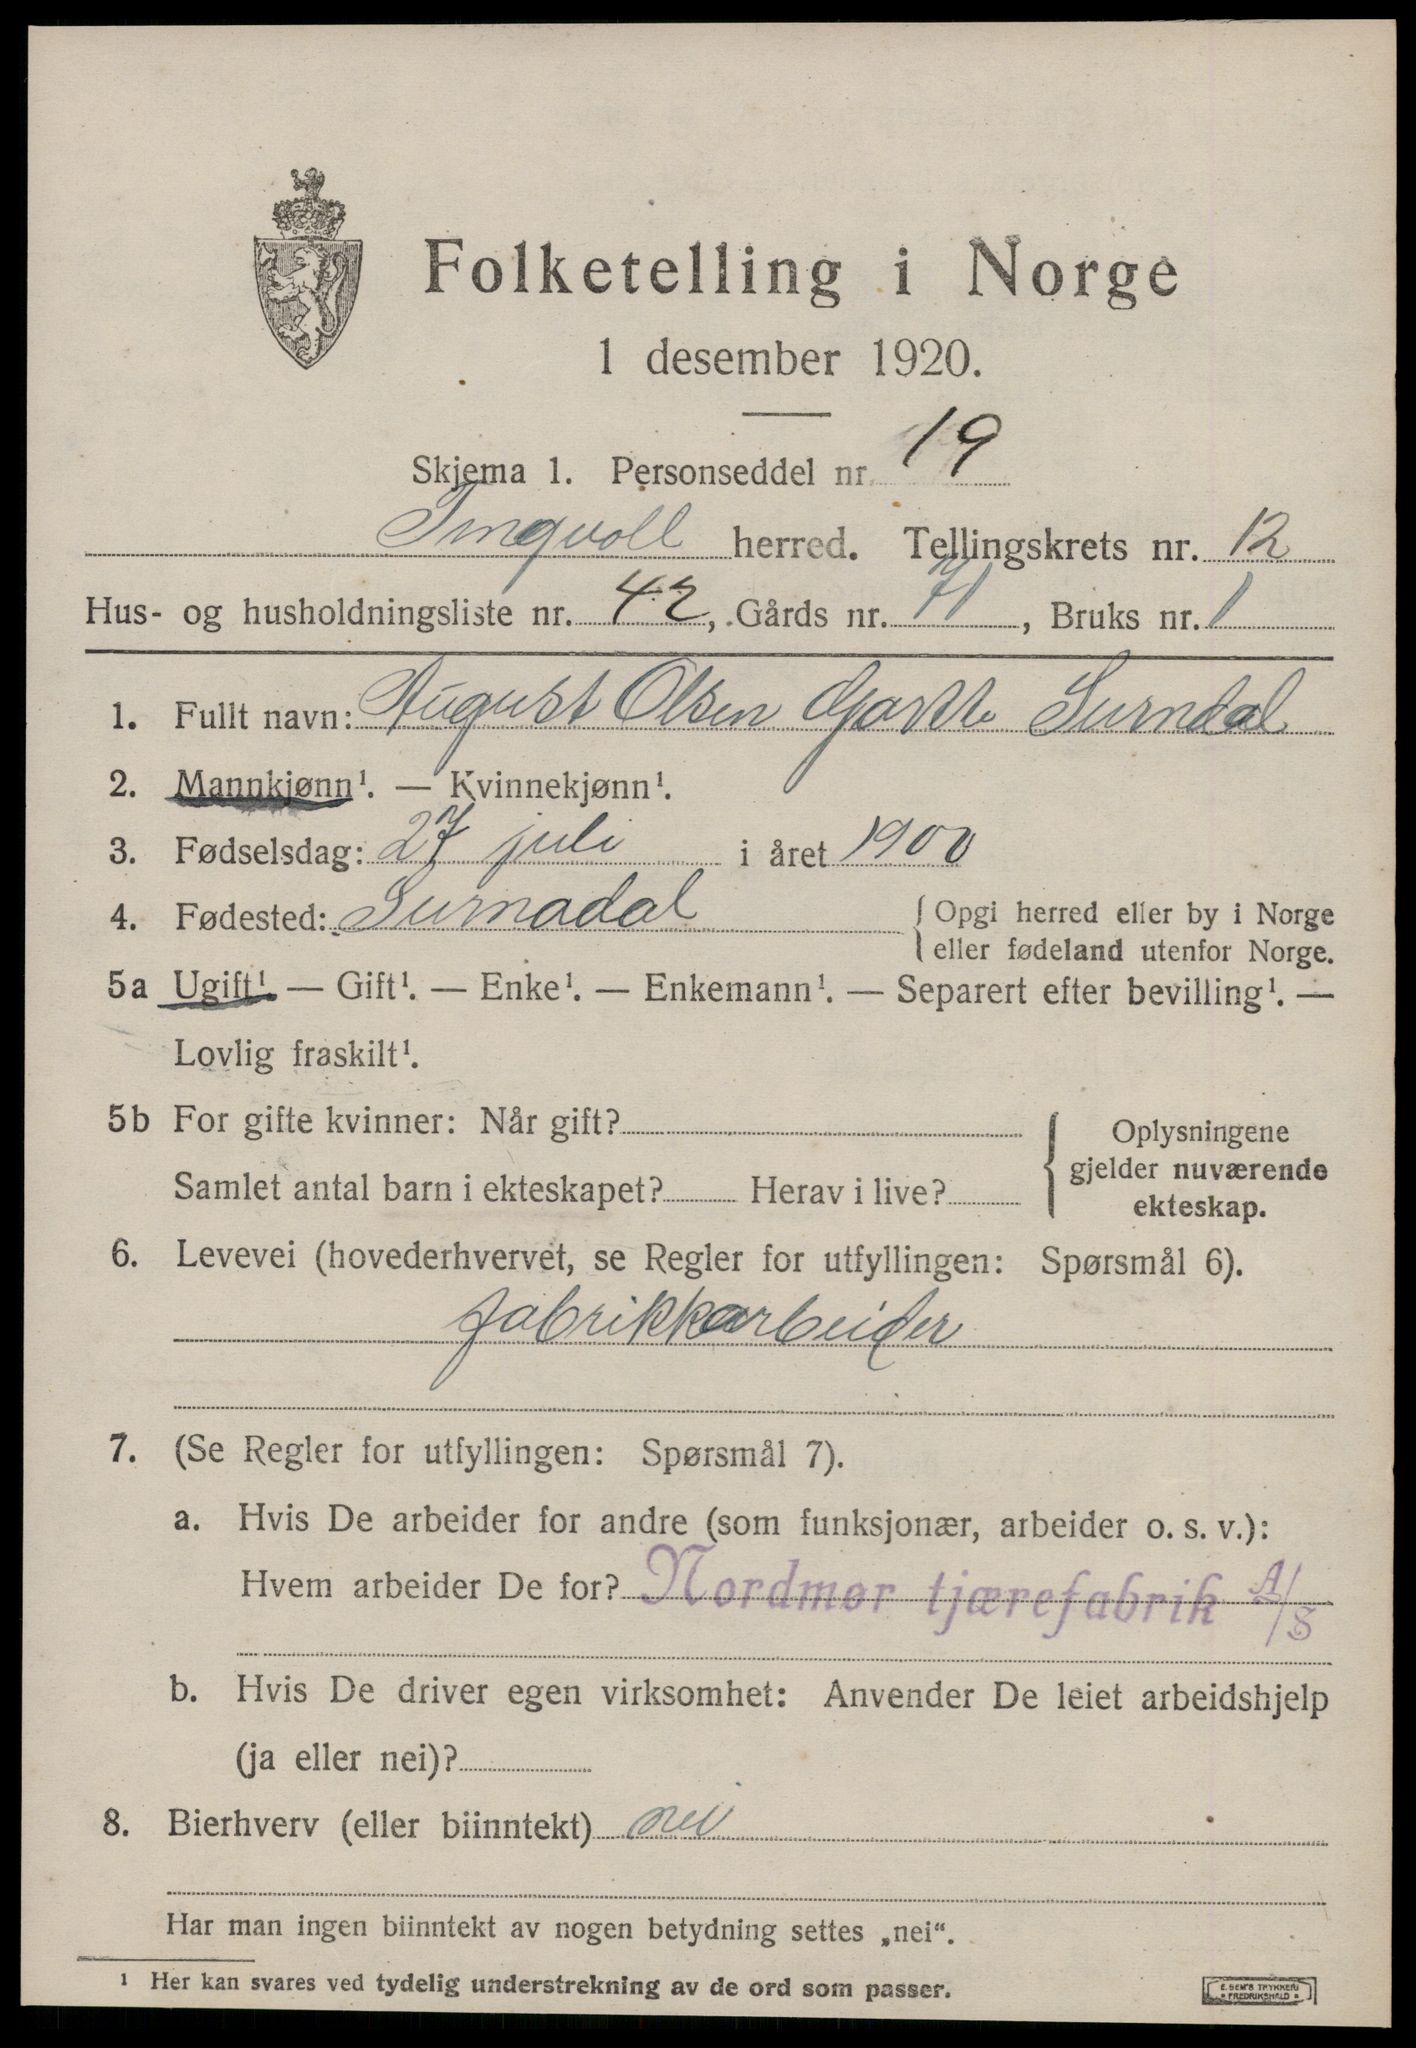 Folketelling i Norge
1 desember 1920.
Skjema 1. Personseddel nr. 19
Tingvoll herred. Tellingskrets nr. 12
Hus- og husholdningsliste nr. 42, Gårds nr. 71, Bruks nr. 1
1. Fullt navn: August Olsen Surndal
2. Mannkjønn¹. — Kvinnekjønn¹.
3. Fødselsdag: 27 juli i året 1900
4. Fødested: Surnadal { Opgi herred eller by i Norge
eller fødeland utenfor Norge.
5a Ugift¹. — Gift¹. — Enke¹. — Enkemann¹. — Separert efter bevilling¹. —
Lovlig fraskilt¹.
5b For gifte kvinner: Når gift?
Samlet antal barn i ekteskapet? Herav i live?
Oplysningene
gjelder nuværende
ekteskap.
6. Levevei (hovederhvervet, se Regler for utfyllingen: Spørsmål 6).
fabrikkarbeider
7. (Se Regler for utfyllingen: Spørsmål 7).
a. Hvis De arbeider for andre (som funksjonær, arbeider o. s. v.):
Hvem arbeider De for? Nordmør tjærefabrik A/S
b. Hvis De driver egen virksomhet: Anvender De leiet arbeidshjelp
(ja eller nei)?
8. Bierhverv (eller biinntekt) nei
Har man ingen biinntekt av nogen betydning settes „nei“.
¹ Her kan svares ved tydelig understrekning av de ord som passer.
E. SEM'S TRYKKERI
FREDRIKSHALD